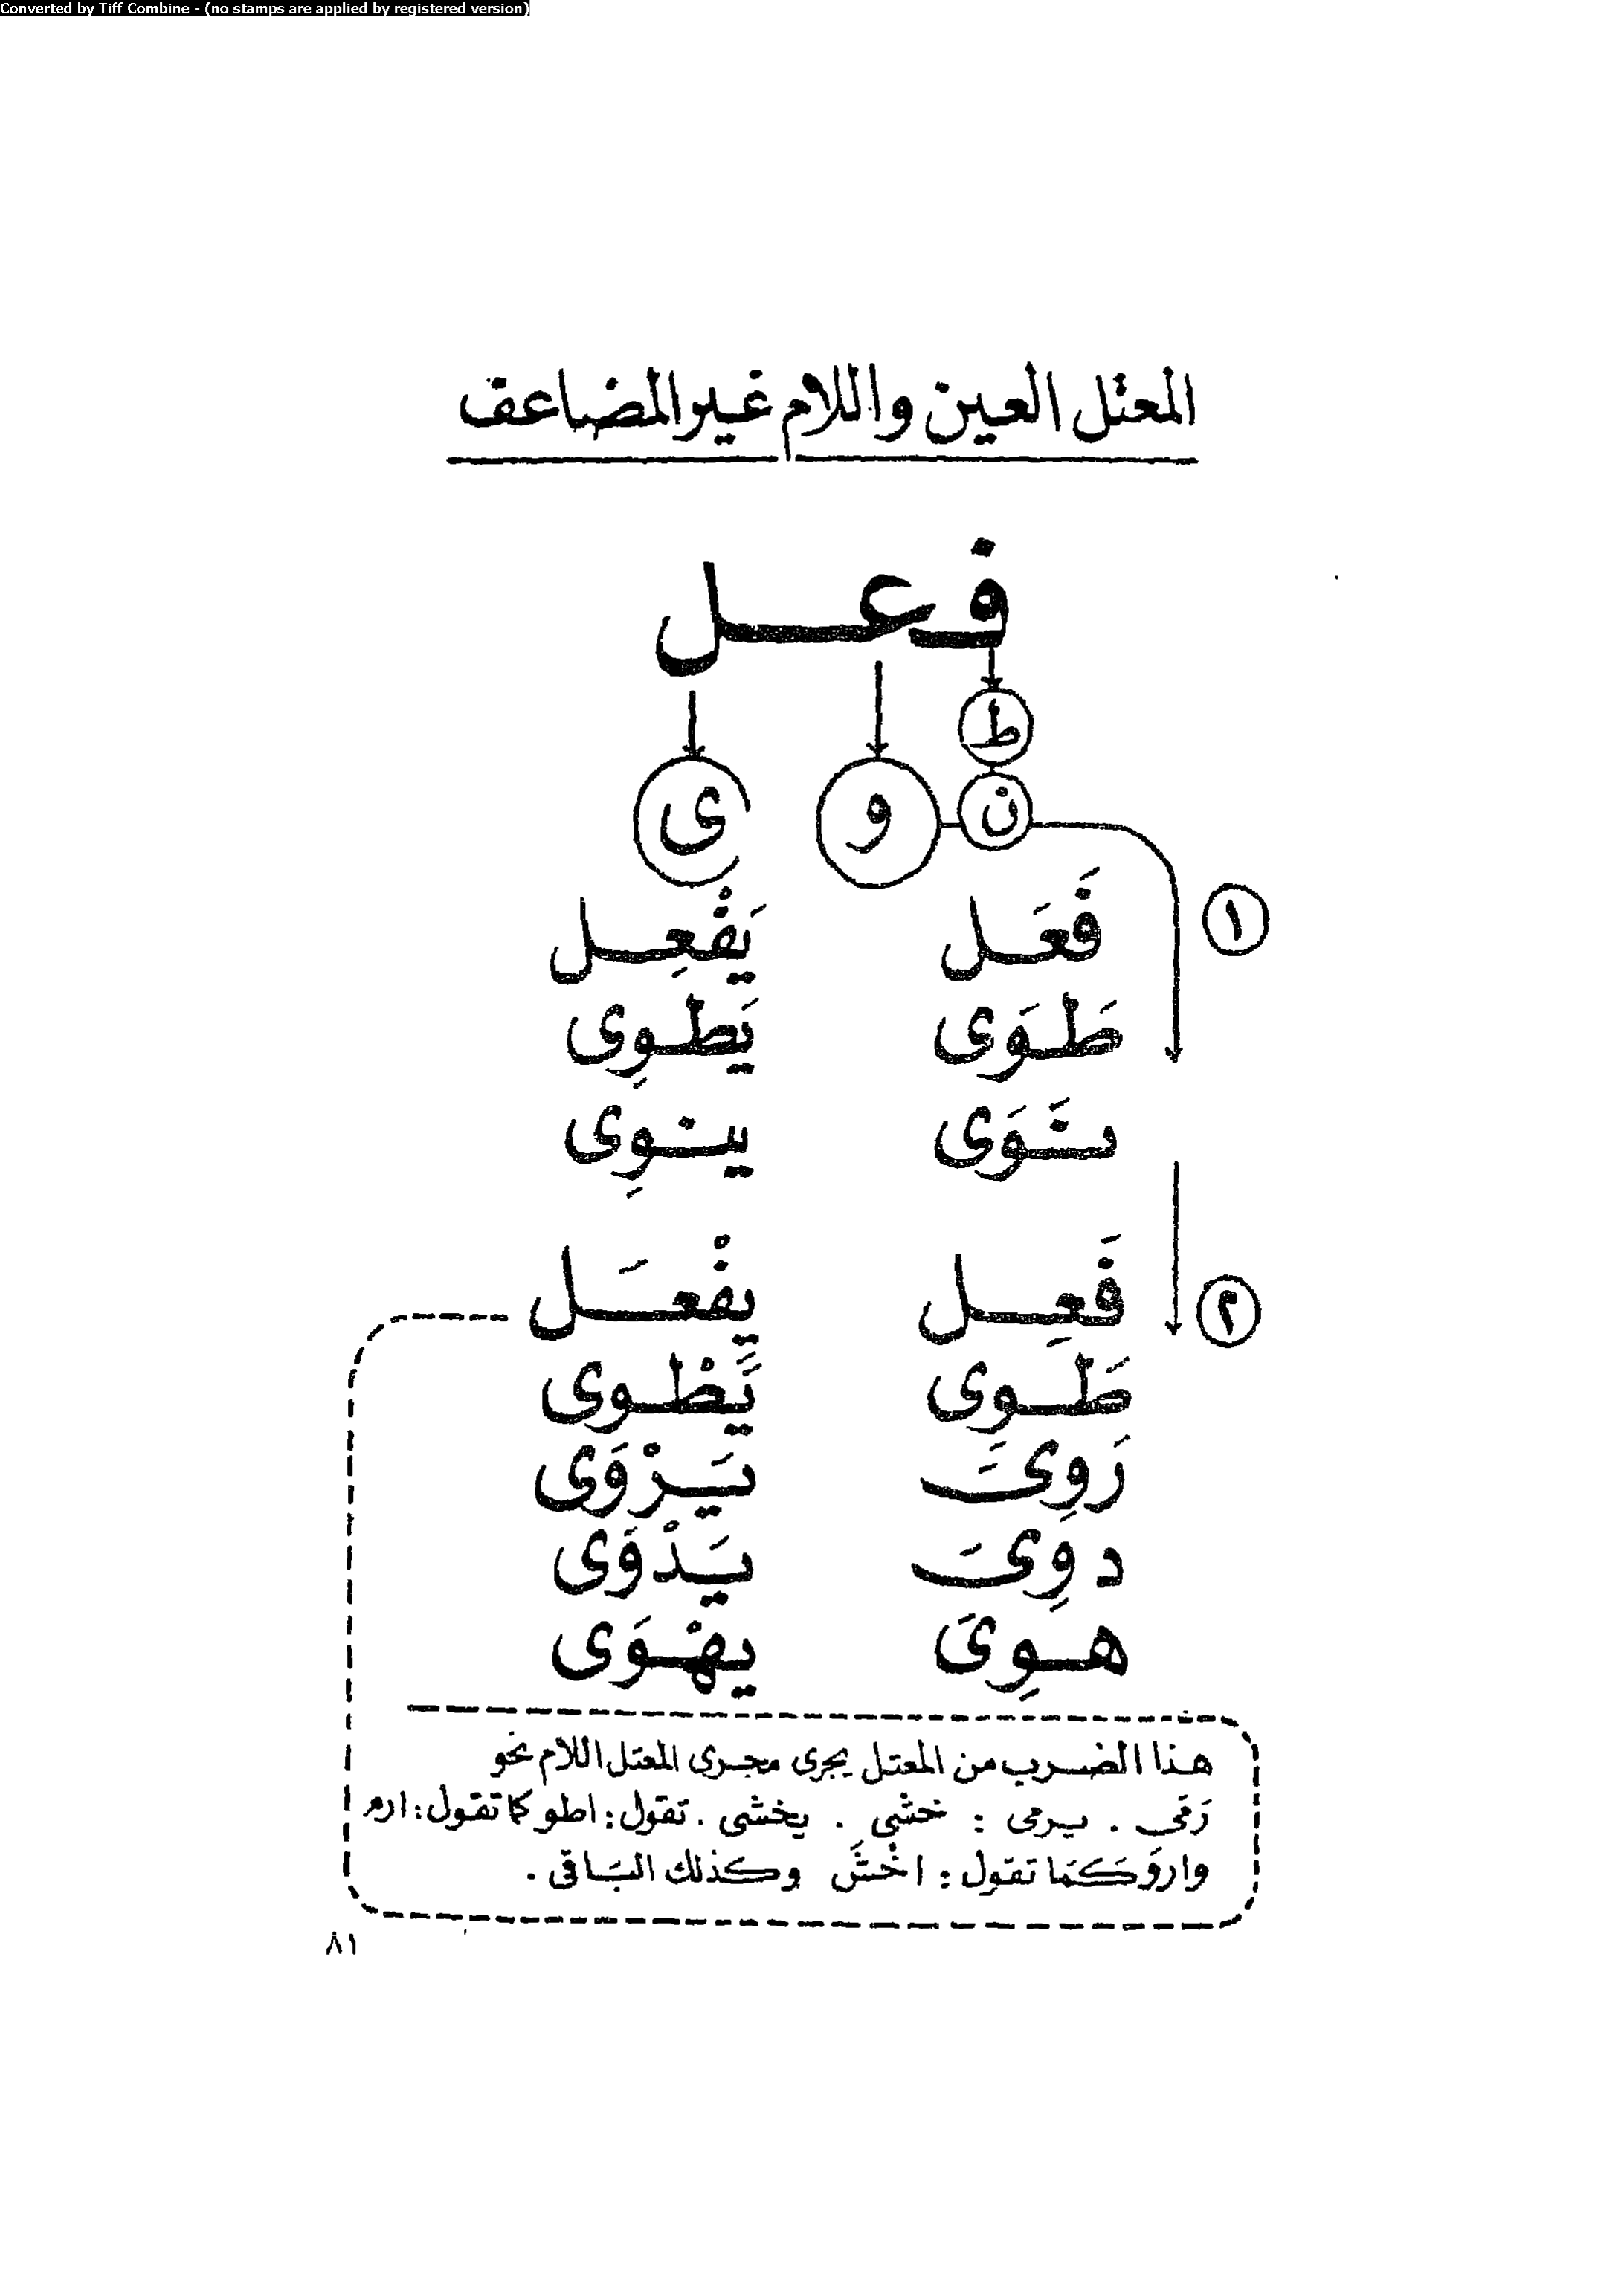 Converted by Tiff Combine - (no stamps are applied by registered version)
المعتل العين واللام غير المضاعف
فعل
ط
ى و ن
١
فَعَل يَفْعِل
طَوَى يَطوِى
نَوَى ينوِى
٢
فَعِل يفْعَل
طَوِى يَطْوى
رَوِىَ يَرْوَى
دوِىَ يَدْوَى
هوِىَ يهْوَى
هذا الضرب من المعتل يجرى مجرى المعتل اللام نحو
رَمَى . يرمى : خشى . يخشى . تقول : اطو كما تقول : ارم
واروَ كَمَا تقول : اخْشَ وكذلك البَاقى .
٨١